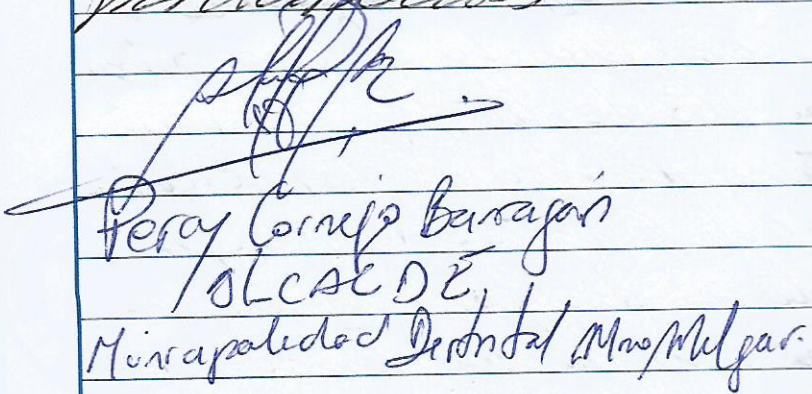 Percy Cornejo Barragán
ALCALDE
Municipalidad Distrital Mno Melgar.